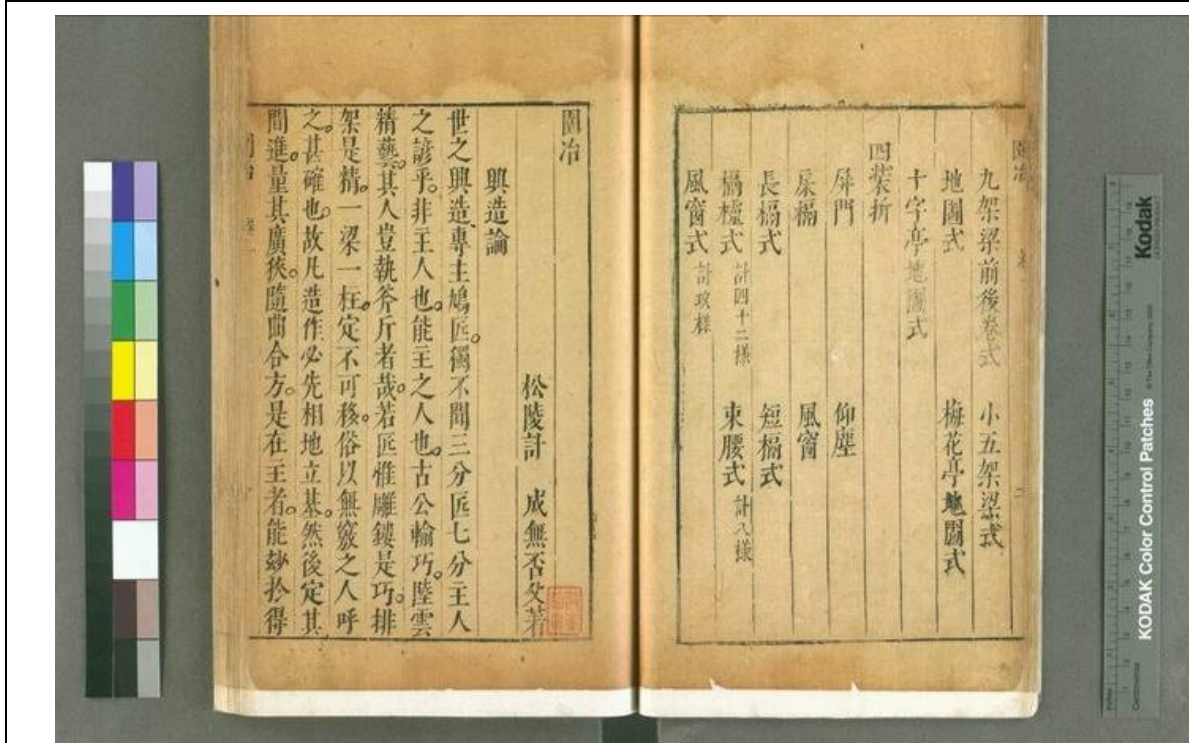 九架梁前後卷式 小五架梁式
地圖式 梅花亭地圖式
十字亭地圖式
四裝折
屏門 仰塵
床槅 風窗
長槅式 短槅式
槅櫺式 計四十二樣 束腰式 計八樣
風窗式 計玖樣
園冶
松陵計 成無否父著
興造論
世之興造專主鳩匠。獨不聞三分匠七分主人
之諺乎。非主人也。能主之人也。古公輸巧。陸雲
精藝。其人豈執斧斤者哉。若匠惟雕鏤是巧。排
架是精。一梁一柱。定不可移。俗以無竅之人呼
之。甚確也。故凡造作必先相地立基。然後定其
間進。量其廣狹。隨曲合方。是在主者。能妙於得
園冶
Kodak
KODAK Color Control Patches
Centimetres